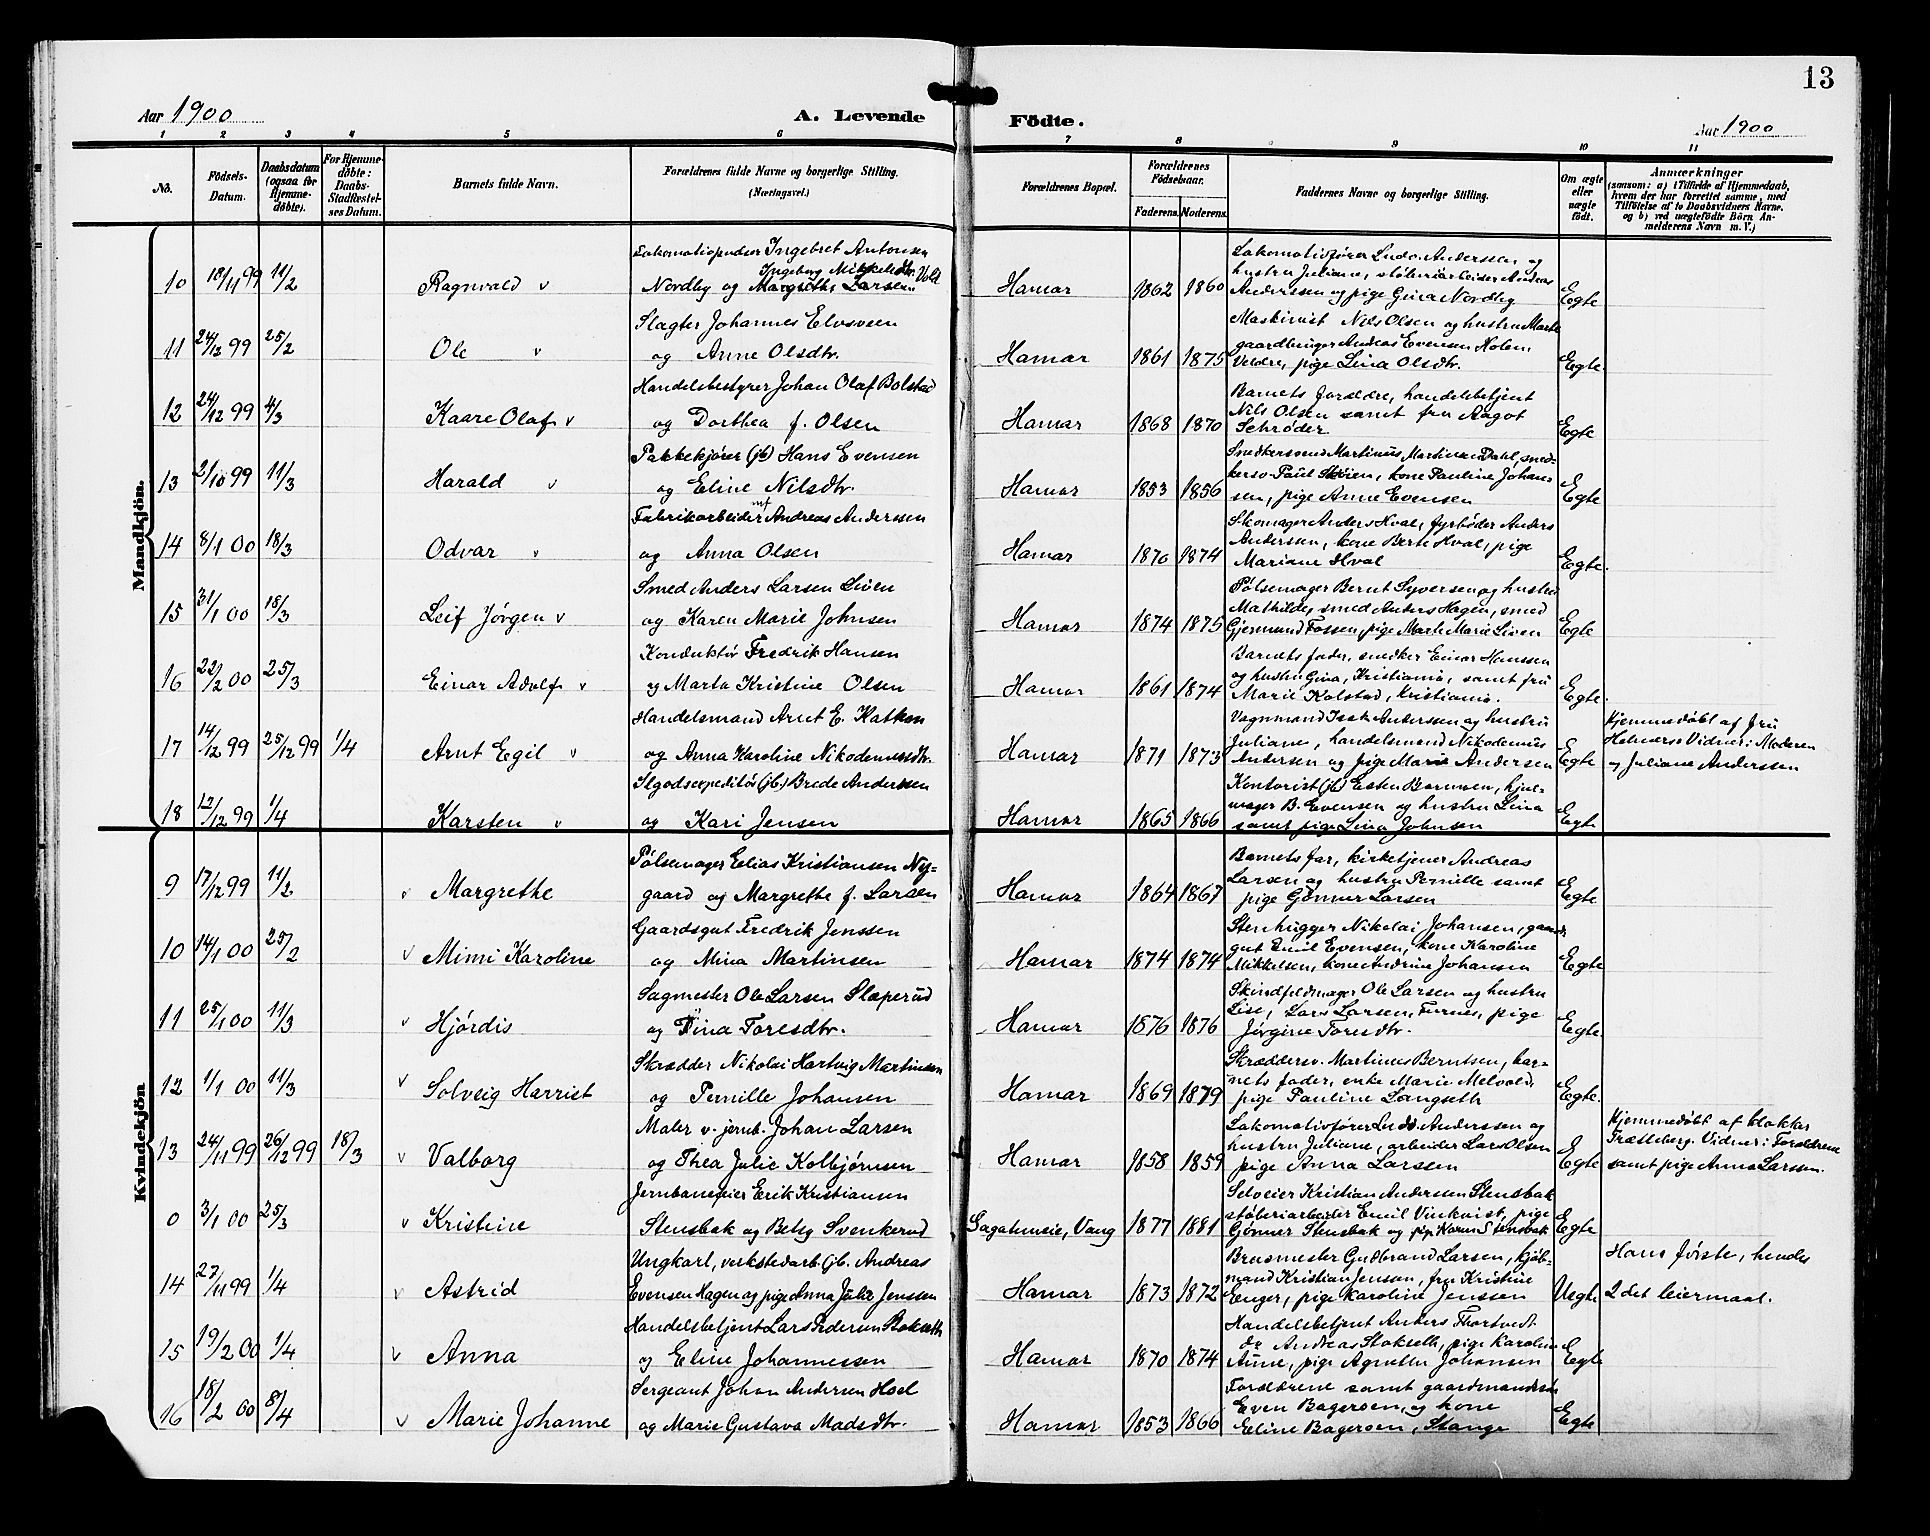 13
Aar 1900
A. Levende
Födte.
Aar 1900
1 2 3 4 5 6 7 8 9 10 11
No.
Födsels-
Datum.
Daabsdatum
(ogsaa for
Hjemme-
döbte).
For Hjemme-
döbte:
Daabs-
Stadfæstel-
ses Datum.
Barnets fulde Navn.
Forældrenes fulde Navne og borgerlige Stilling.
(Næringsvei.)
Forældrenes Bopæl.
Forældrenes
Födselsaar.
Faderens. Moderens.
Faddernes Navne og borgerlige Stilling.
Om ægte
eller
uægte
født.
Anmærkninger
(saasom: a) i Tilfælde af Hjemmedaab,
hvem der har forrettet samme, med
Tilföielse af to Daabsvidners Navne.
og b) ved uægtefödte Börn An-
melderens Navn m. V.)
Mandkjön.
10 18/11 99 11/2 Ragnvald v
Lokomotivpudser Ingebret Antonsen
Ingeborg Mikkelsdtr. Vold
Nordby og Margrethe Larsen
Hamar 1862 1860
Lokomotivfører Ludv. Anderssen og
hustru Juliane, støberiarbeider Andreas
Anderssen og pige Gina Nordby
Egte
11 24/12 99 25/2 Ole v
Slagter Johannes
og Anne Olsdtr.
Hamar 1861 1875
Maskinist Nils Olsen og hustru Marte
gaardbruger Andreas Evensen Holen,
Veldre, pige Lina Olsdtr.
Egte
12 24/12 99 4/3 Kaare Olaf v
Handelsbestyrer Johan Olaf Bolstad
og Dorthea f. Olsen
Hamar 1868 1870
Barnets forældre, handelsbetjent
Nils Olsen samt fru Aagot
Schrøder.
Egte
13 2/10 99 11/3 Harald v
Pakkekjører (jb) Hans Evensen
og Eline Nilsdtr.
Hamar 1853 1856
Smedkersvend Martinius Martinsen Dahl, smed-
kersv. Paul Skøien, kone Pauline Johan-
sen, pige Anne Evensen
Egte
14 8/1 00 18/3 Odvar v
Fabrikarbeider Andreas Anderssen
og Anna Olsen
Hamar 1870 1874
Skomager Anders Hval, fyrbøder Anders
Andersen, kone Berte Hval, pige
Mariane Hval
Egte.
15 31/1 00 18/3 Leif Jørgen v
Smed Anders Larsen Lien
og Karen Marie Johnsen
Hamar 1874 1875
Pølsemager Bernt Syversen og hustru
Mathilde, smed Anders Hagen, smed
Gjermund Fossen, pige Marte Marie Lien
Egte
16 22/2 00 25/3 Einar Adolf v
Konduktør Fredrik Hansen
og Marta Kristine Olsen
Hamar 1861 1874
Barnets fader, snedker Einar Hanssen
og hustru Gina, Kristiania, samt fru
Marie Kolstad, Kristiania.
Egte.
17 14/12 99 25/12 99 1/4 Arnt Egil v
Handelsmand Arnt E.
og Anna Karoline Nikodemusdtr.
Hamar 1871 1873
Vognmand Isak Andersen og hustru
Juliane, handelsmand Nikodemus
Andersen og pige Marie Andersen
Egte
Hjemmedøbt af fru
Halvorsen Vidner: Moderen
og Juliane Anderssen
18 12/12 99 1/4 Karsten v
Ilgodsexpeditør (jb.) Brede Anderssen
og Kari Jensen
Hamar 1865 1866
Kontorist (jb) Esten Børmoen, hjul-
mager B. Evensen og hustru Lina
samt pige Lina Johnsen
Egte
Kvindekjön
9 17/12 99 11/2 v Margrethe
Pølsemager Elias Kristiansen Ny-
gaard og Margrethe f. Larsen
Hamar 1864 1867
Barnets far, kirketjener Andreas
Larsen og hustru Pernille samt
pige Gønner Larsen
Egte
10 14/1 00 25/2 v Mimi Karoline
Gaardsgut Fredrik Jenssen
og Mina Martinsen
Hamar 1874 1874
Stenhugger Nikolai Johansen, gaards-
gut Emil Evensen, kone Karoline
Mikkelsen, kone Andrine Johansen
Egte
11 25/1 00 11/3 v Hjørdis
Sagmester Ole Larsen Slaperud
og Tina Toresdtr.
Hamar 1876 1876
Skindfeldmager Ole Larsen og hustru
Lise, Lars Larsen, Furnes, pige
Jørgine Toresdtr.
Egte.
12 1/1 00 11/3 v Solveig Harriet
Skrædder Nikolai Hartvig Martinsen
og Pernille Johansen
Hamar 1869 1879
Skræddersv. Martinus Berntsen, bar-
nets fader, enke Marie Melvold,
pige Pauline Langseth
Egte.
13 24/11 99 26/12 99 18/3 v Valborg
Maler v. jernb. Johan Larsen
og Thea Julie Kolbjørnsen
Hamar 1858 1859
Lokomotivfører Ludv. Anderssen og
hustru Juliane, arbeider Lars Olsen
pige Anna Larssen
Egte
Hjemmedøbt af klokker
Trætteberg. Vidner: Forældrene
samt pige Anna Larssen.
0 3/1 00 25/3 v Kristine
Jernbaneeier Erik Kristiansen
Stensbak og Betsy Svenkerud
Vang 1877 1881
Selveier Kristian Andersen Stensbak
støberiarbeider Emil Vinkvist, pige
Gønner Stensbak og pige Karen Stensbak
Egte
14 27/11 99 1/4 v Astrid
Ungkarl, verkstedarb. (jb. Andreas
Evensen Hagen og pige Anna Julie Jenssen
Hamar 1873 1872
Brusmester Gudbrand Larsen, kjøb-
mand Kristian Jenson, fru Kristine
Enger, pige Karoline Jenssen
Uegte
Hans første, hendes
2det leiermaal.
15 19/2 00 1/4 v Anna
Handelsbetjent Lars Pedersen Stokseth
og Eline Johannessen
Hamar 1870 1874
Handelsbetjent Anders Thortvedt
do Andreas Stokseth, pige Karoline
Aune, pige Agnethe Johansen
Egte
16 18/2 00 8/4 v Marie Johanne
Sergeant Johan Andersen Hoel
og Marie Gustava Madsdtr.
Hamar 1853 1866
Forældrene samt gaardmandssøn
Even Bagersen, og kone
Eline Bagersen, Stange
Egte